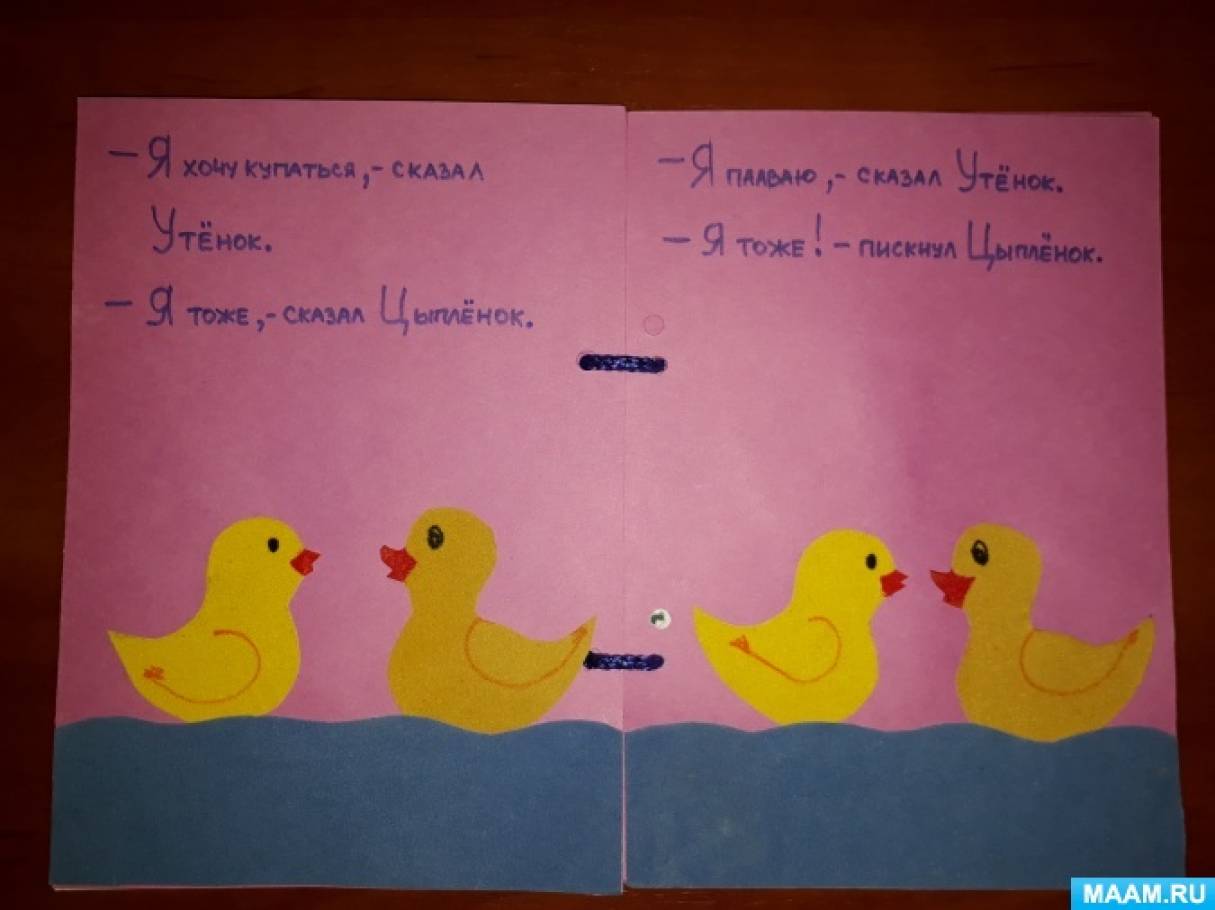 — Я хочу купаться,- сказал
Утёнок.
— Я тоже,- сказал Цыплёнок.
— Я плаваю,- сказал Утёнок.
— Я тоже! - пискнул Цыплёнок.
MAAM.RU